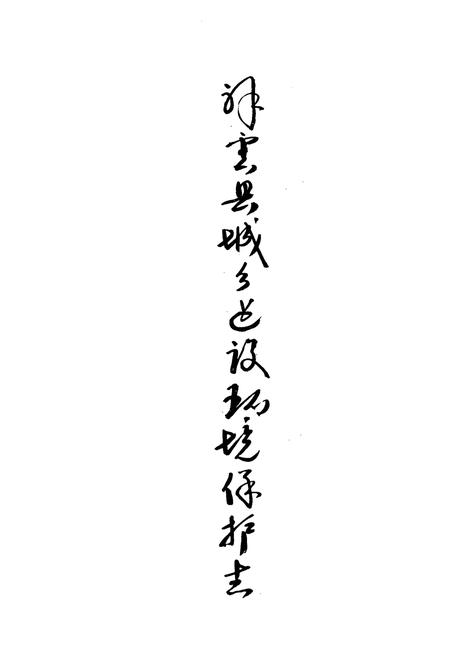 祥云县城乡建设环境保护志